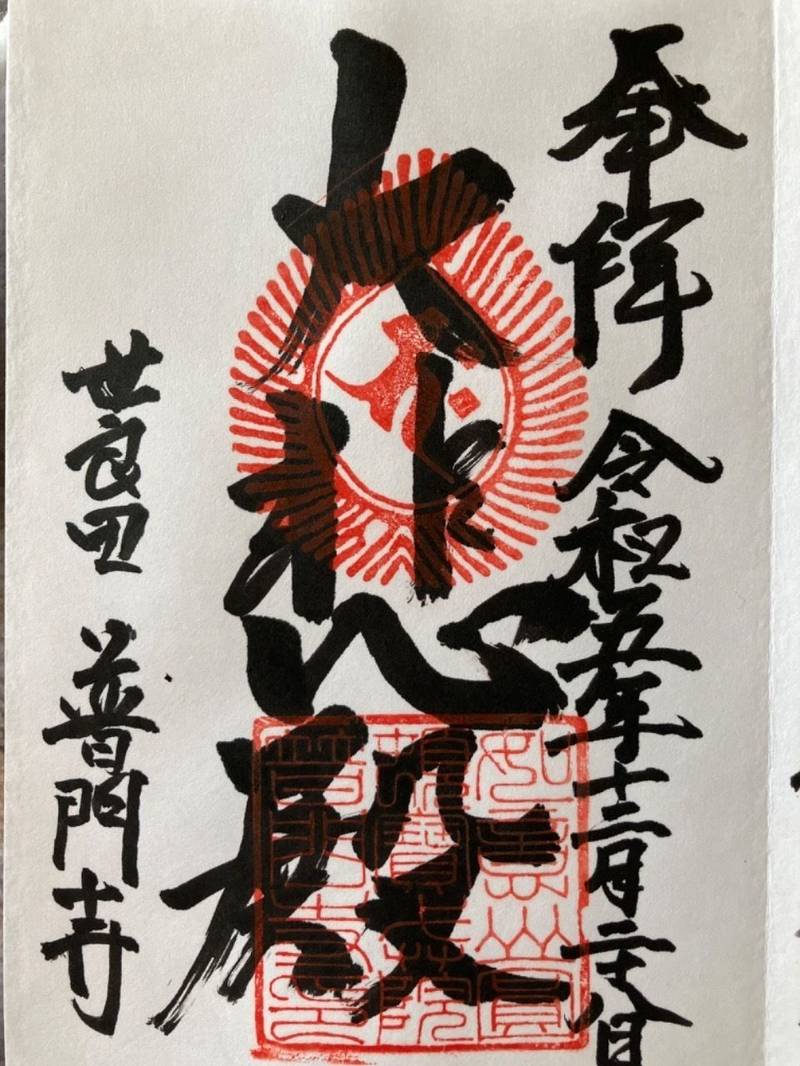 奉拝 令和五年十二月二十八日
大悲殿
世良田 普門寺